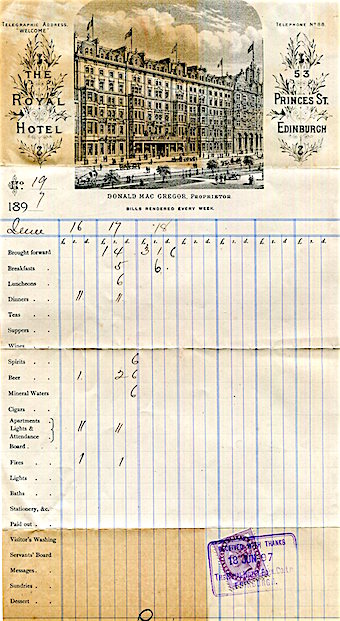 TELEGRAPHIC ADDRESS, "WELCOME"
TELEPHONE No 88.
THE ROYAL HOTEL
53 PRINCES ST. EDINBURGH
No 19
DONALD MAC GREGOR, PROPRIETOR
1897
BILLS RENDERED EVERY WEEK.
June 16 17 18
£. s. d. £. s. d. £. s. d. £. s. d. £. s. d. £. s. d. £. s. d.
Brought forward 1 4 3 1 6
Breakfasts . . 5 6
Luncheons . . 6
Dinners . . 11 11
Teas . .
Suppers . .
Wines . .
Spirits . . 6
Beer . . 1 2 6
Mineral Waters 6
Cigars . .
Apartments Lights & Attendance . 11 11
Board . .
Fires . . 1 1
Lights . .
Baths . .
Stationery, &c.
Paid out . .
Visitor's Washing
Servants' Board
Messages .
Sundries . .
Dessert . .
RECEIVED WITH THANKS
18 JUN 97